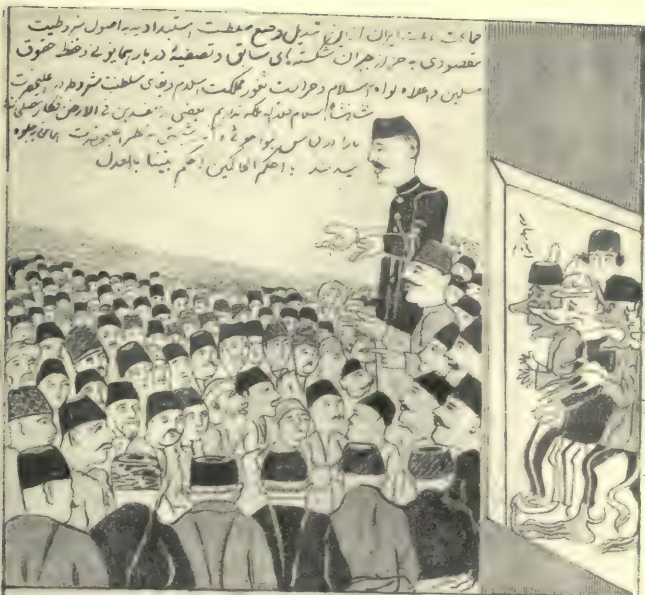 جماعت ملت ایران از این تبدیل وضع سلطنت استبدادیه به اصول مشروطیت
مقصودی به جز از جبران شکسته های سابق و تصفیهٔ دربار همایونی و حفظ حقوق
مسلمین و اعلاء لواء اسلام و حراست ثغور مملکت اسلام و بقای سلطنت مشروطه در اعلیحضرت
شاهنشاه اسلام فداه نداریم بعضی مفسدین فی الارض
ما را در لباس و آشتی به نظر اعلیحضرت جلوه
میدهند یا احکم الحاکمین احکم بیننا بالعدل
امیر بهادر